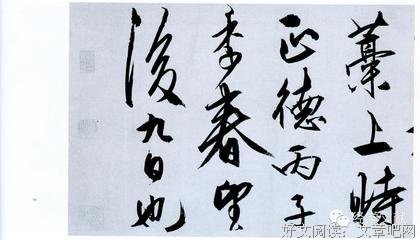 藁上時
正德丙子
季春望
後九日也
好文阅读：文章吧网